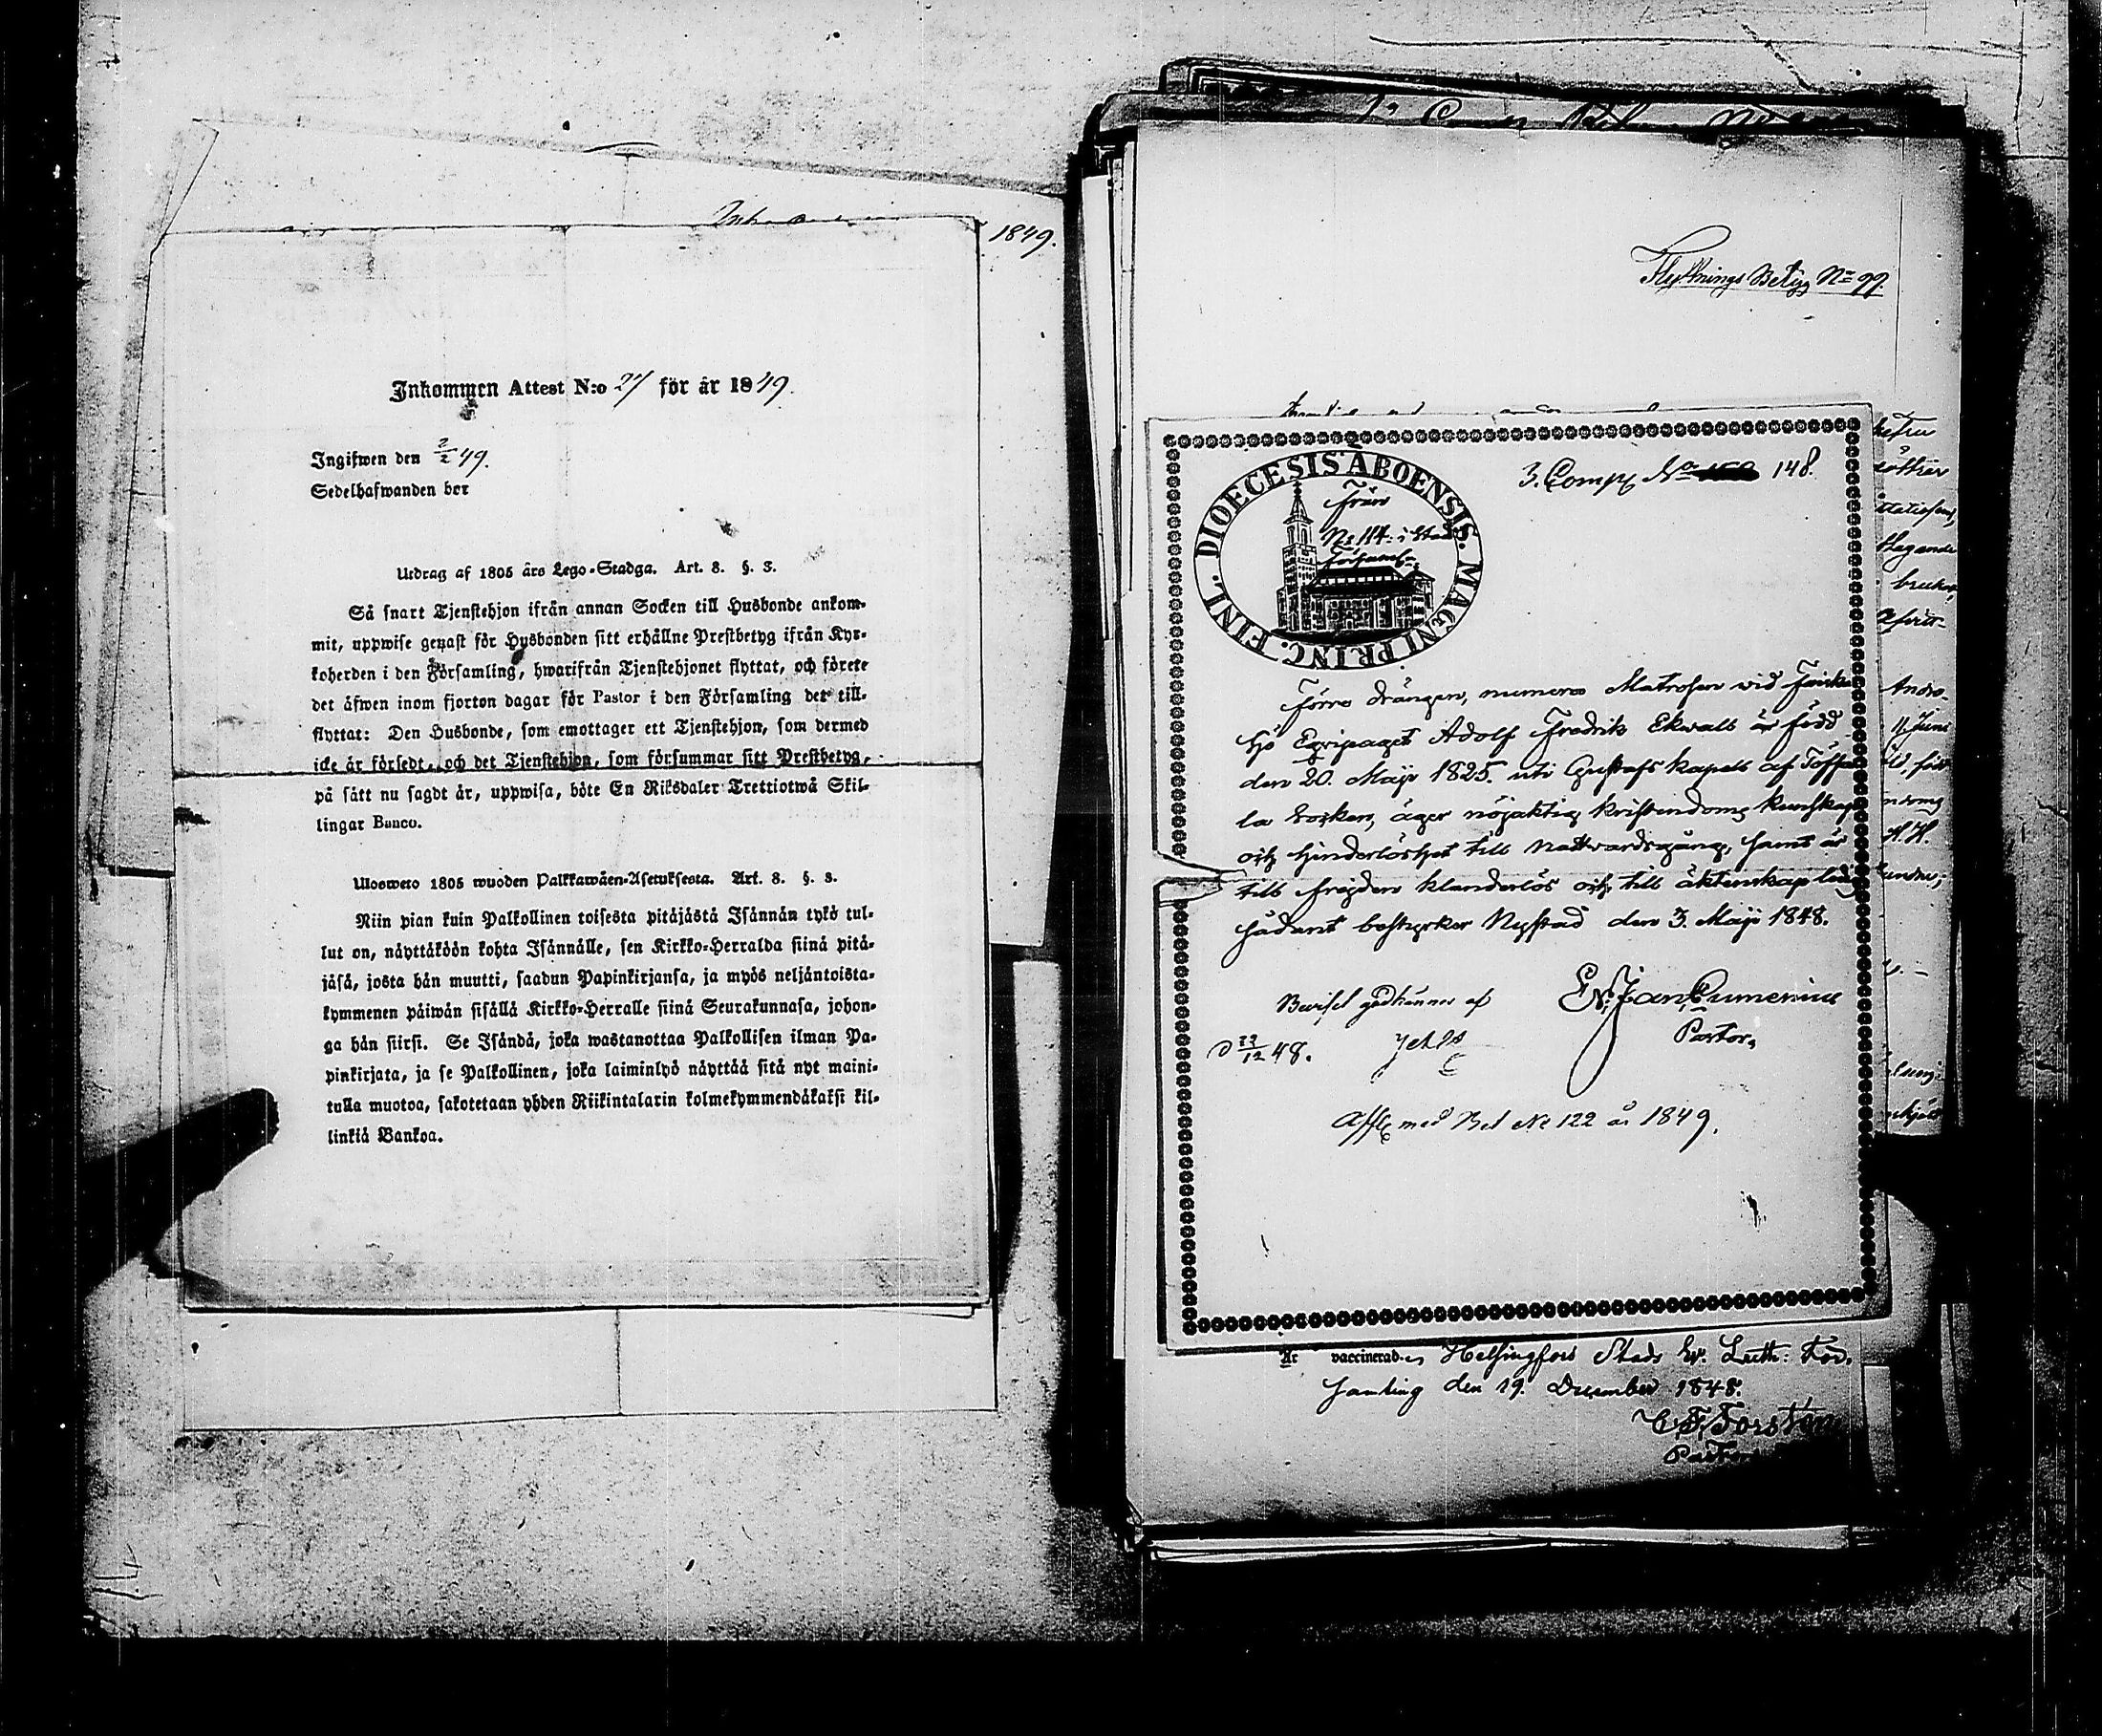 1849.
Inkommen Attest N:o 27 för år 1849.
Ingifwen den 2/2 49.
Sedelhafwanden bor
Utdrag af 1805 års Lego-Stadga. Art. 8. §. 3.
Så snart Tjenstehjon ifrån annan Socken till Husbonde ankom-
mit, uppwise genast för Husbonden sitt erhållne Prestbetyg ifrån Kyr-
koherden i den Församling, hwarifrån Tjenstehjonet flyttat, och förete
det äfwen inom fjorton dagar för Pastor i den Församling det till-
flyttat: Den Husbonde, som emottager ett Tjenstehjon, som dermed
icke är försedt, och det Tjenstehjon, som försummar sitt Prestbetyg,
på sätt nu sagdt är, uppwisa, böte En Riksdaler Trettiotwå Skil-
lingar Banco.
Ulosweto 1805 wuoden Palkkawäen-Asetuksesta. Art. 8. §. 3.
Niin pian kuin Palkollinen toisesta pitäjästä Isännän tykö tul-
lut on, näyttäköön kohta Isännälle, sen Kirkko-Herralda siinä pitä-
jäsä, josta hän muutti, saadun Papinkirjansa, ja myös neljäntoista-
kymmenen päiwän sisällä Kirkko-Herralle siinä Seurakunnasa, johon-
ga hän siirsi. Se Isändä, joka wastanottaa Palkollisen ilman Pa-
pinkirjata, ja se Palkollinen, joka laiminlyö näyttää sitä nyt maini-
tulla muotoa, sakotetaan yhden Riikintalarin kolmekymmendäkaksi kil-
linkiä Bankoa.
Flyttnings Betyg No 99.
3. Comp No 148.
DIOECESIS ÅBOENSIS. MAGNI PRINC. FINL.
Från
No 114 i Stads
Förre drängen, numera Matrosen vid Finska
Sjö Equipaget Adolf Fredrik Ekwall är född
den 20. Maji 1825. uti Gustafs kapell af Töffsa
la Socken, äger nöjaktig kristendoms kunskap
och hinderlöshet till Nattvardsgång, samt är
till frejden klanderlös och till äktenskap ledig
sådant bestyrker Nystad den 3. Maji 1848.
Pastor.
Beviset godkännes af
d 22/12 48.
Afflg med Bet No 122 år 1849.
Är vaccinerad. Helsingfors Stads Ev. Luth. För.
samling den 19. December 1848.
C. F. Forstén
Pastor